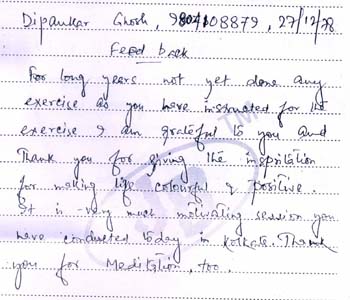 Dipankar Ghosh, 9804108879, 27/12/28
Feed back
For long years not yet done any
exercise as you have insronated for the
exercise I am grateful to you and
Thank you for giving the inspritation
for making life colourful & positive.
It is very much motivating session you
have conducted today in Kolkata. Thank
you for Meditation, too.
TM